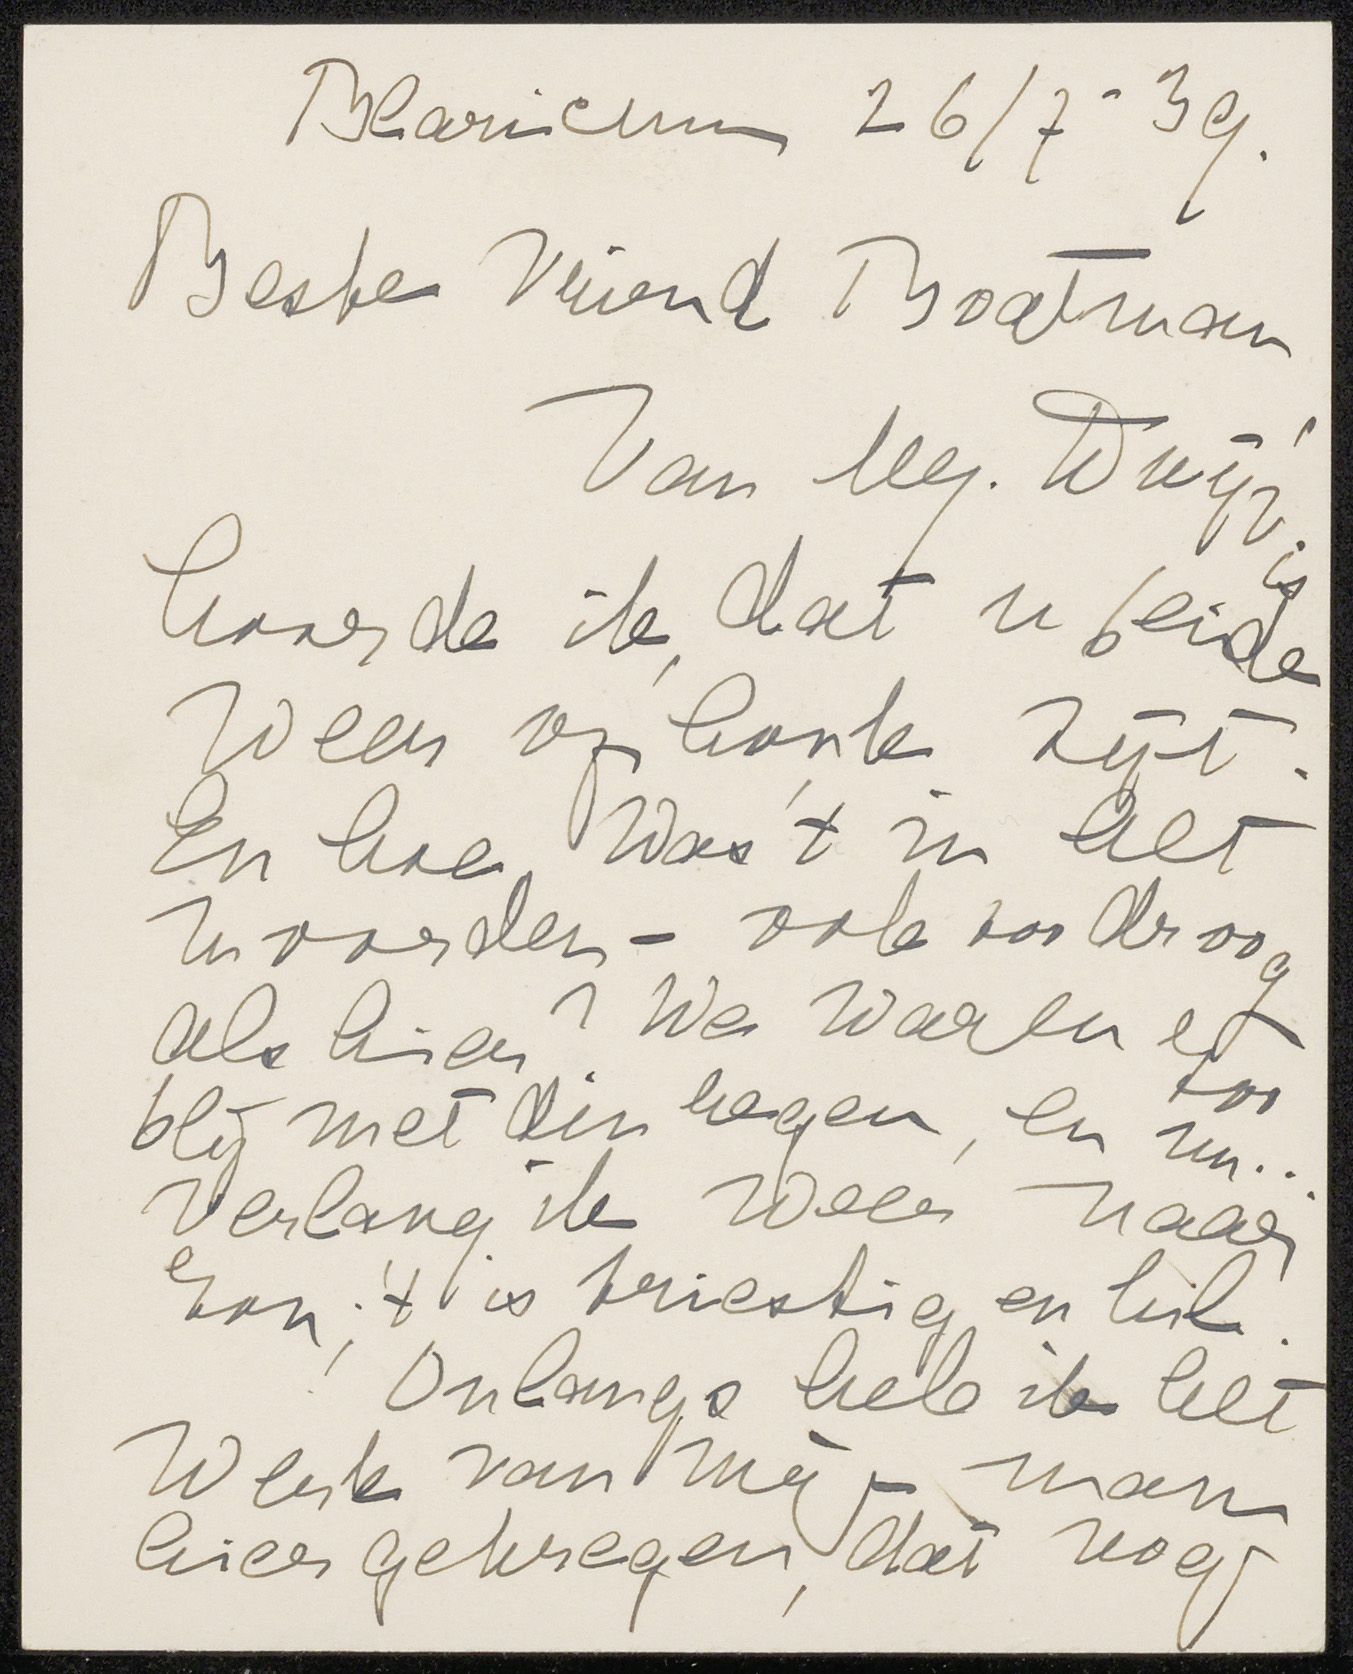 Blaricum 26/7-39.
Beste Vriend Boatman
Van Mej.
hoorde ik, dat u beide
weer op honk zijt.
En hoe was 't in het
noorden - ook zoo droog
als hier? We waren er zoo
blij met den regen, en nu...
verlang ik weer naar
zon, 't is triestig en kil.
Onlangs heb ik het
werk van mijn man
hier gekregen, dat nog